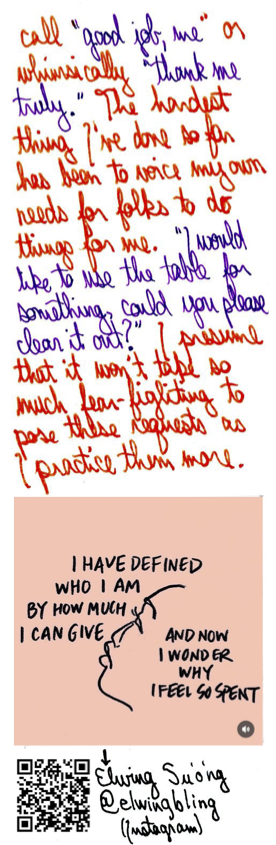 call "good job, me" or
whimsically "thank me
truly." The hardest
thing I've done so far
has been to voice my own
needs for folks to do
things for me. "I would
like to use the table for
something, could you please
clear it out?" I presume
that it won't take so
much fear-fighting to
pose these requests as
I practice them more.
I HAVE DEFINED
WHO I AM
BY HOW MUCH
I CAN GIVE
AND NOW
I WONDER
WHY
I FEEL SO SPENT
Elwing Sương
@elwingbling
(Instagram)